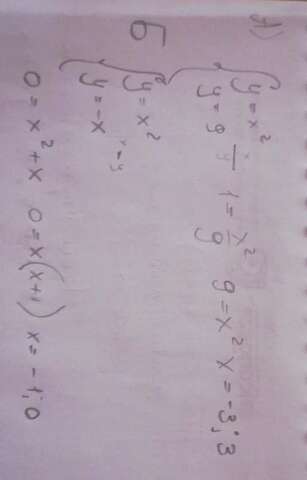 А)
{ y = x²
y = 9 1 = x²/9 9 = x² x = -3; 3
Б
{ y = x²
y = -x
0 = x² + x 0 = x(x+1) x = -1; 0